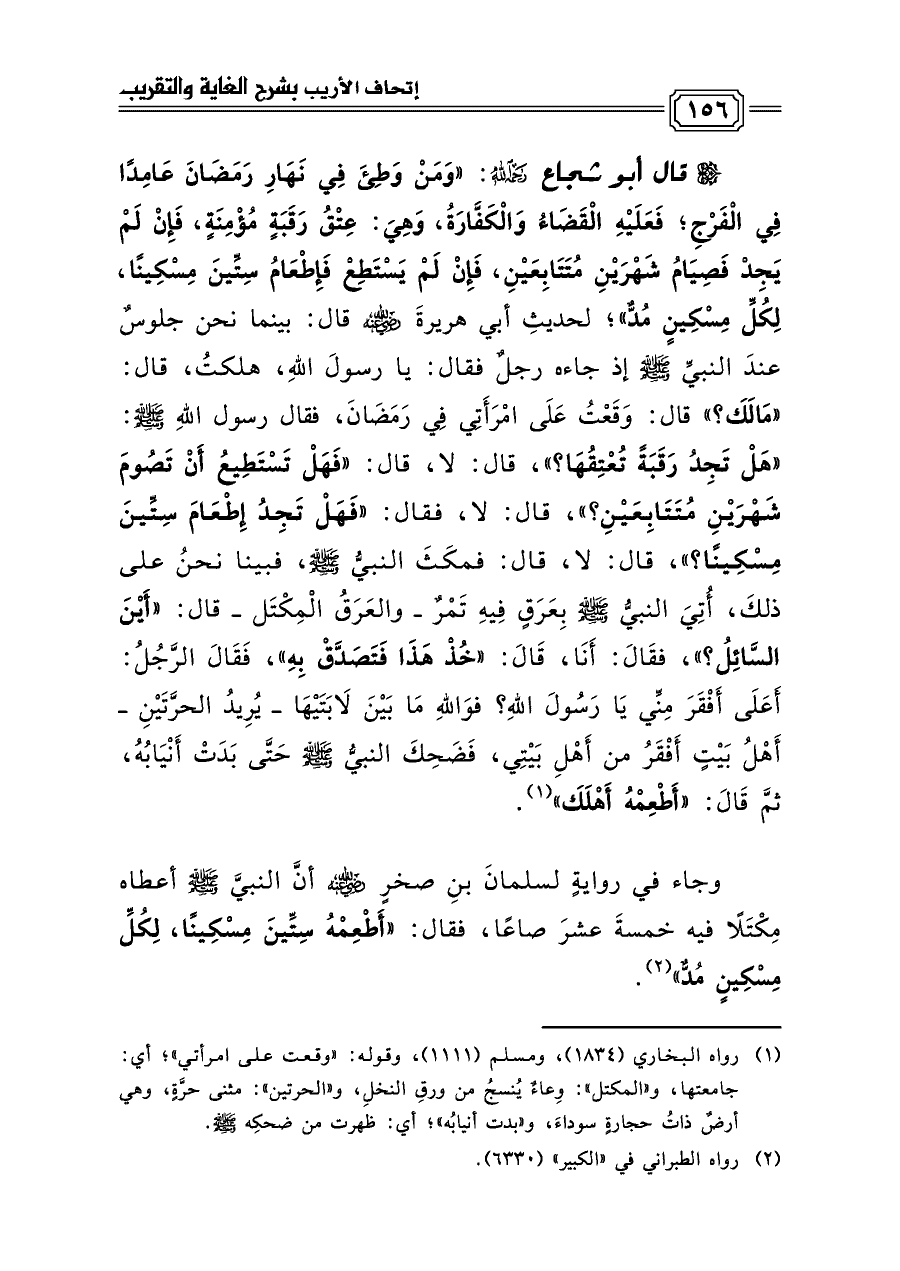 إتحاف الأريب بشرح الغاية والتقريب
١٥٦
قال أبو شجاع رحمه الله: «وَمَنْ وَطِئَ فِي نَهَارِ رَمَضَانَ عَامِدًا
فِي الْفَرْجِ؛ فَعَلَيْهِ الْقَضَاءُ وَالْكَفَّارَةُ، وَهِيَ: عِتْقُ رَقَبَةٍ مُؤْمِنَةٍ، فَإِنْ لَمْ
يَجِدْ فَصِيَامُ شَهْرَيْنِ مُتَتَابِعَيْنِ، فَإِنْ لَمْ يَسْتَطِعْ فَإِطْعَامُ سِتِّينَ مِسْكِينًا،
لِكُلِّ مِسْكِينٍ مُدٌّ»؛ لحديثِ أبي هريرةَ رضي الله عنه قال: بينما نحن جلوسٌ
عندَ النبيِّ ﷺ إذ جاءه رجلٌ فقال: يا رسولَ اللهِ، هلكتُ، قال:
«مَالَكَ؟» قال: وَقَعْتُ عَلَى امْرَأَتِي فِي رَمَضَانَ، فقال رسول اللهِ ﷺ:
«هَلْ تَجِدُ رَقَبَةً تُعْتِقُهَا؟»، قال: لا، قال: «فَهَلْ تَسْتَطِيعُ أَنْ تَصُومَ
شَهْرَيْنِ مُتَتَابِعَيْنِ؟»، قال: لا، فقال: «فَهَلْ تَجِدُ إِطْعَامَ سِتِّينَ
مِسْكِينًا؟»، قال: لا، قال: فمكَثَ النبيُّ ﷺ، فبينا نحنُ على
ذلكَ، أُتِيَ النبيُّ ﷺ بِعَرَقٍ فِيهِ تَمْرٌ ـ والعَرَقُ الْمِكْتَل ـ قال: «أَيْنَ
السَّائِلُ؟»، فقَالَ: أَنَا، قَالَ: «خُذْ هَذَا فَتَصَدَّقْ بِهِ»، فَقَالَ الرَّجُلُ:
أَعَلَى أَفْقَرَ مِنِّي يَا رَسُولَ اللهِ؟ فوَاللهِ مَا بَيْنَ لَابَتَيْهَا ـ يُرِيدُ الحرَّتَيْنِ ـ
أَهْلُ بَيْتٍ أَفْقَرُ من أَهْلِ بَيْتِي، فَضَحِكَ النبيُّ ﷺ حَتَّى بَدَتْ أَنْيَابُهُ،
ثمَّ قَالَ: «أَطْعِمْهُ أَهْلَكَ»(١).
وجاء في روايةٍ لسلمانَ بنِ صخرٍ رضي الله عنه أنَّ النبيَّ ﷺ أعطاه
مِكْتَلًا فيه خمسةَ عشرَ صاعًا، فقال: «أَطْعِمْهُ سِتِّينَ مِسْكِينًا، لِكُلِّ
مِسْكِينٍ مُدٌّ»(٢).
(١) رواه البخاري (١٨٣٤)، ومسلم (١١١١)، وقوله: «وقعت على امرأتي»؛ أي:
جامعتها، و«المكتل»: وِعاءٌ يُنسجُ من ورقِ النخلِ، و«الحرتين»: مثنى حرَّةٍ، وهي
أرضٌ ذاتُ حجارةٍ سوداءَ، و«بدت أنيابُه»؛ أي: ظهرت من ضحكِه ﷺ.
(٢) رواه الطبراني في «الكبير» (٦٣٣٠).